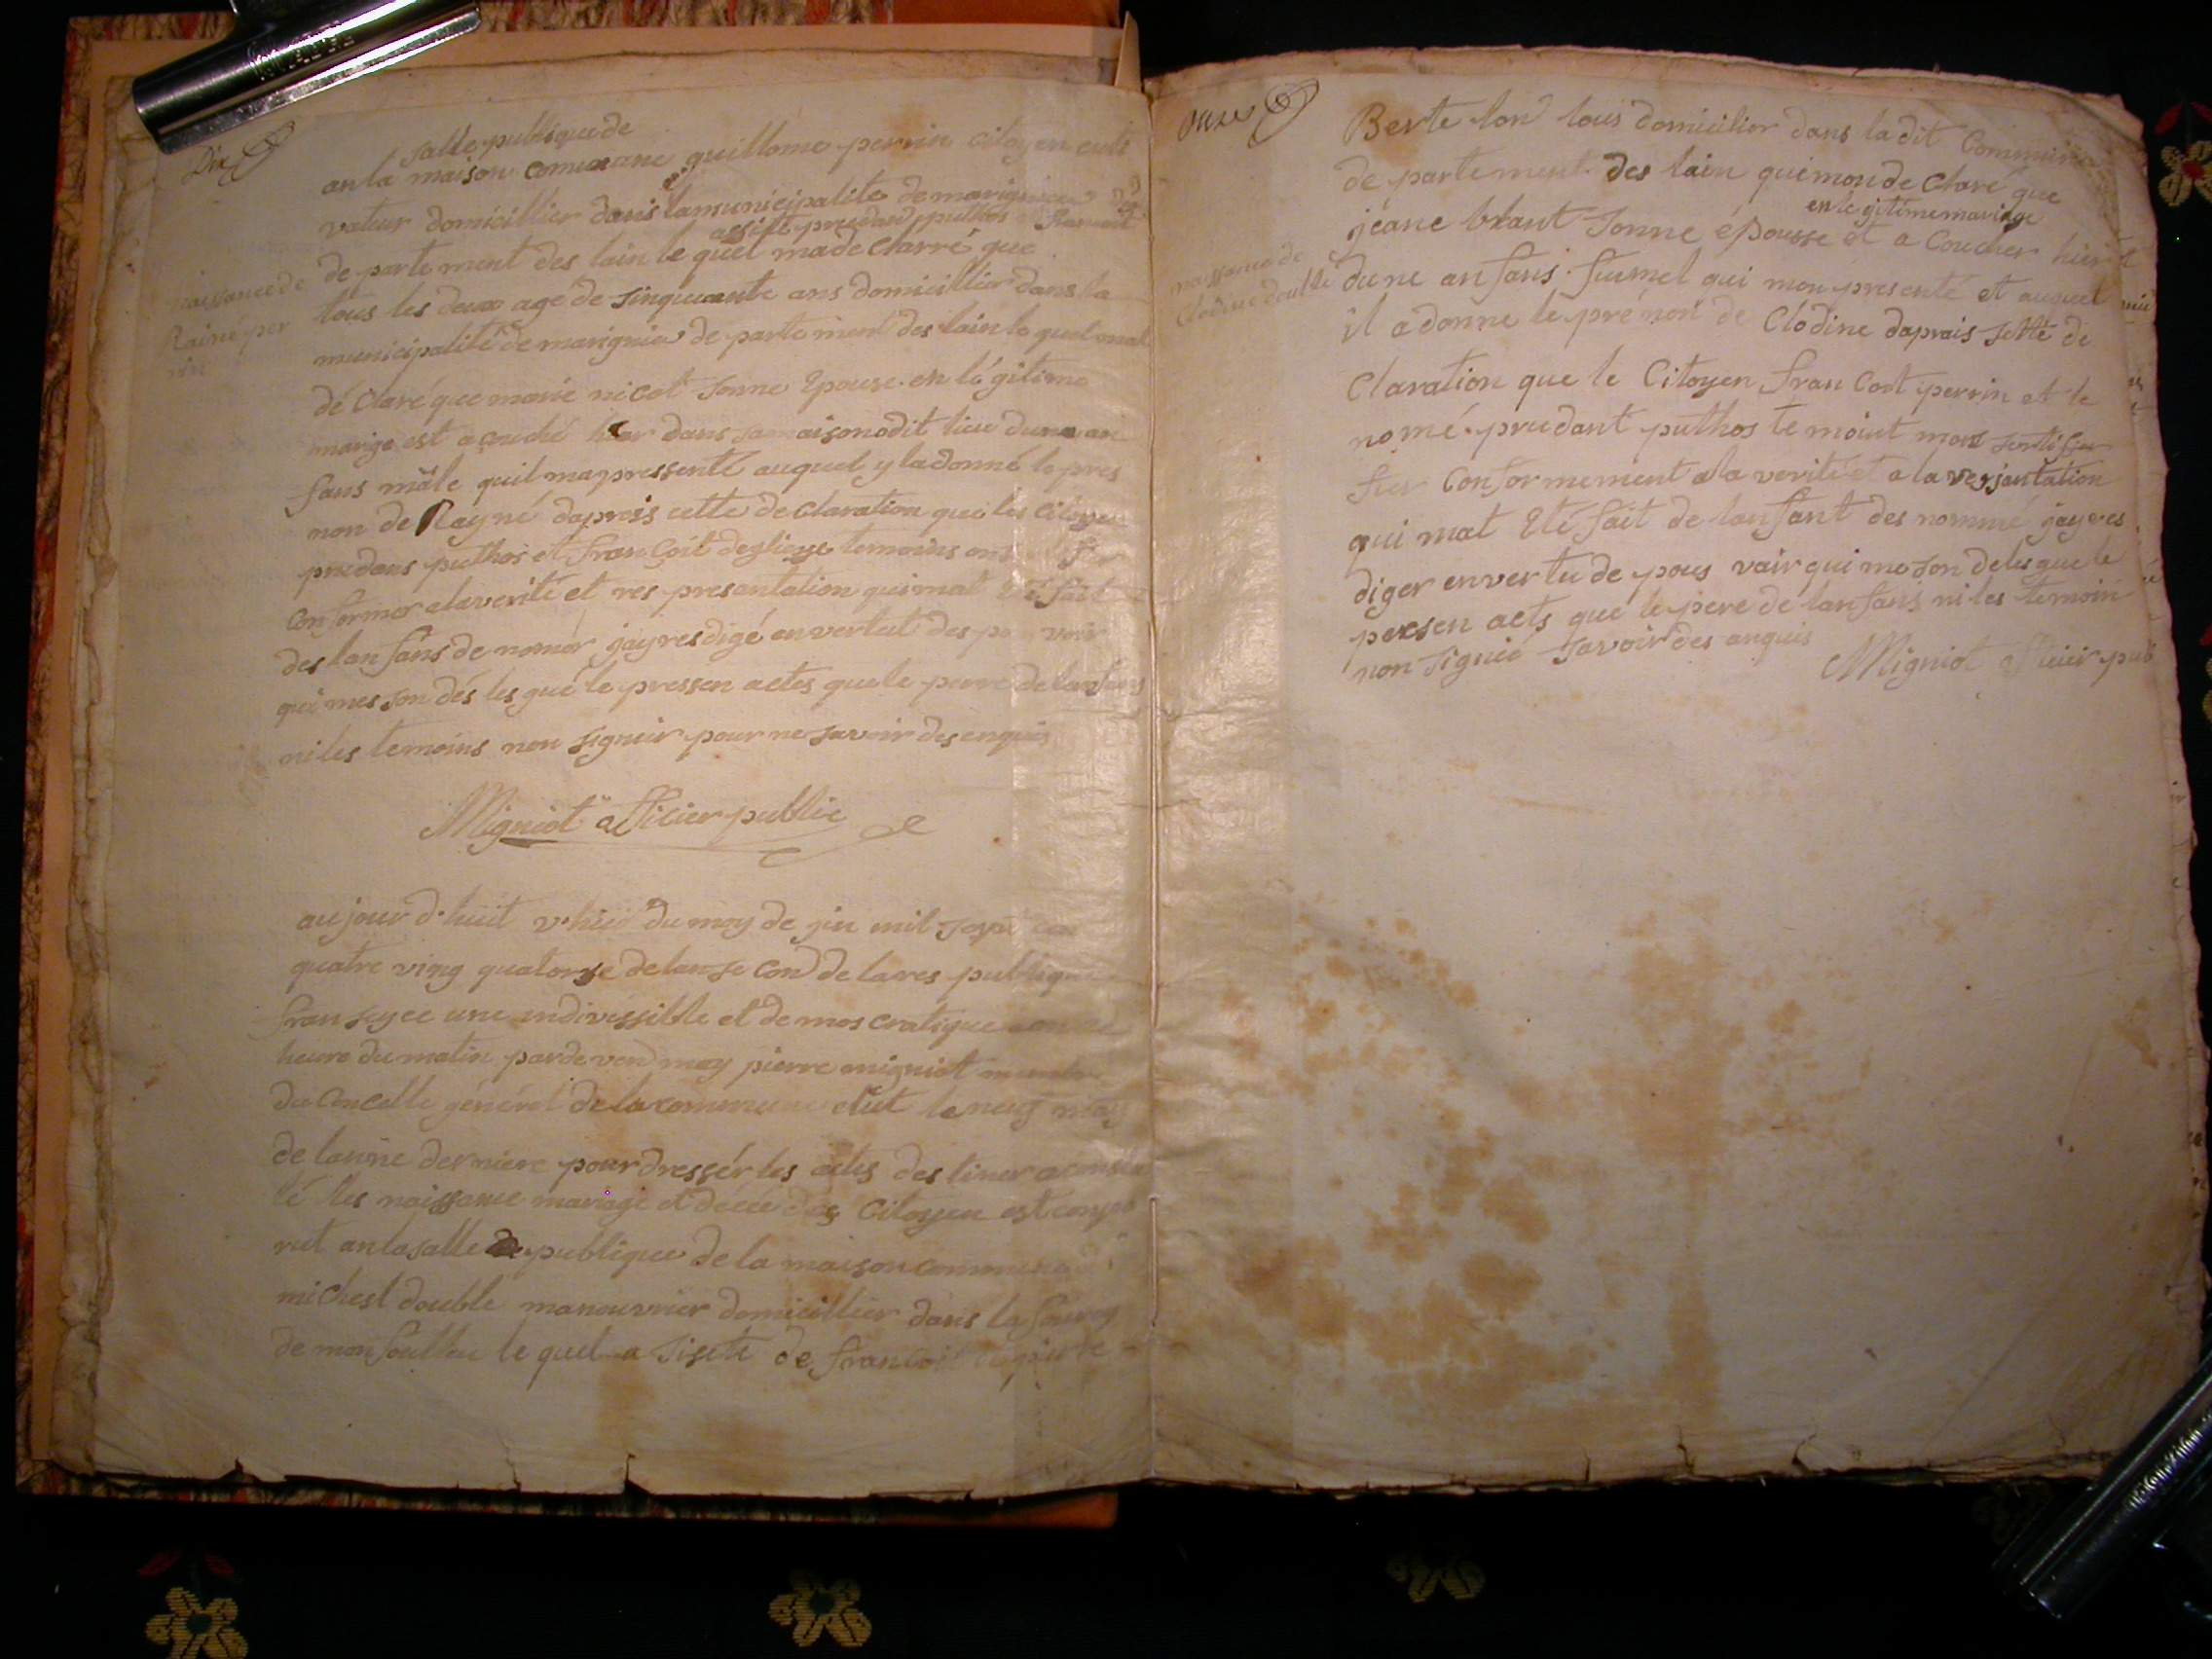 Dix
salle publique de
an la maison comunane guillome perrin citoyen culti
vateur domicillier dans la municipalite de marignia
assisté prudans puthos
de parte ment des lain le quel ma de Clarré que
tous les deux age de sinquante ans domicillier dans la
municipalité de marignia de parte ment des lain le quel mat
naissance de
Rainé per
rin
dé Claré que marie nicol sonne Epouse en légitime
mariage est acouché hier dans sa maison odit lieu dune an
fans mâle quil ma pressenté auquel y la donné le pres
non de Rayné daprais cette de Claration que les Citoyen
prudans puthos et françoit degliege temoins ons
Conformer alaverité et res presantation qui mat Eté fait
des lan fans de nomer jay res digé en vertut des pou voir
qui mes son dés les gué le pressen actes que le perre de lanfans
ni les temoins non signier pour ne savoir des enquis
Migniot officier public
aujour d'huit v.huit du moy de jiu mil sept cen
quatre ving quatorse de lan se Con de la res publique
fran seyce une indivissible et de mos cratique
heure du matin par de ven moy pierre migniot
du Concelle général de la commune elut le neuf may
de lanné derniere pour dressér les actes des tiner a consta
té les naissance mariage et décée des Citoyen est conpa
rut an la salle publique de la maison commune
michesl double manouvrier domicillier dans la
de mon le quel a sisté de francoit
Onze
Berte lon tous domicilier dans la dit Commune
de parte ment des lain qui mon de Claré que
en le gitime mariage
jeane blant sonne épousse et a Coucher hier
naissance de
Clodine double
dune an fans fumel qui mon presenté et auquel
il a donne le pré non de Clodine daprais sette de
Claration que le Citoyen fran Coit perrin et le
nomé prudant puthos te moint mont sertiffi
fier Conformement a la verité et a la
qui mat Eté fait de lanfant des nommé jay res
diger en ver tu de pous vair qui me son deles que le
persen acts que le pere de lanfans ni les temoin
non signié savoir des anquis
Migniot officier pub